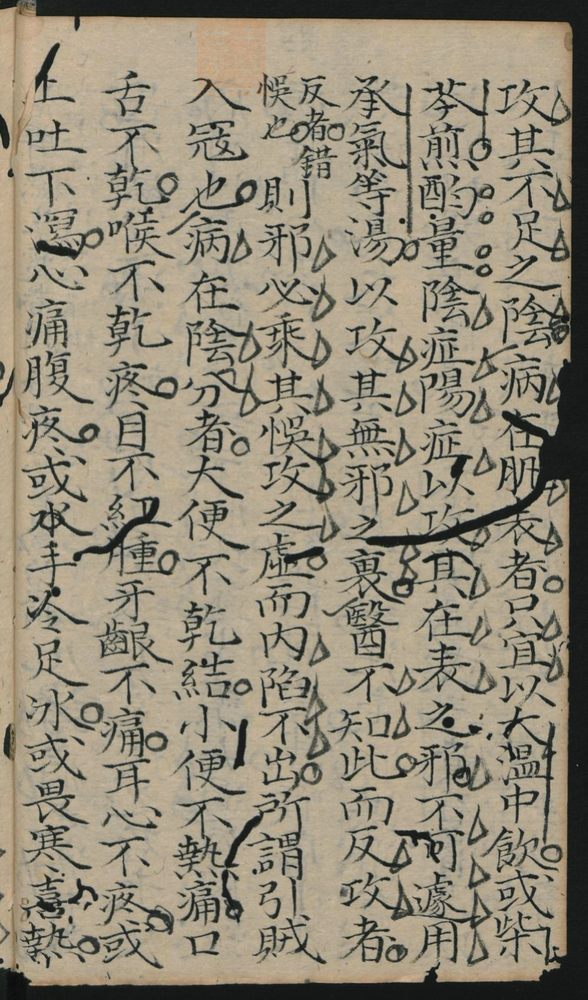 攻其不足之陰病在肌表者只宜以大溫中飲或柴
芩煎酌量陰症陽症以攻其在表之邪不可遽用
承氣等湯以攻其無邪之裏醫不知此而反攻者
反者錯悞也則邪必乘其悞攻之虛而內陷不出所謂引賊
入寇也病在陰分者大便不乾結小便不熱痛口
舌不乾喉不乾疼目不紅腫牙齦不痛耳心不疼或
上吐下瀉心痛腹疼或水手冷足冰或畏寒喜熱